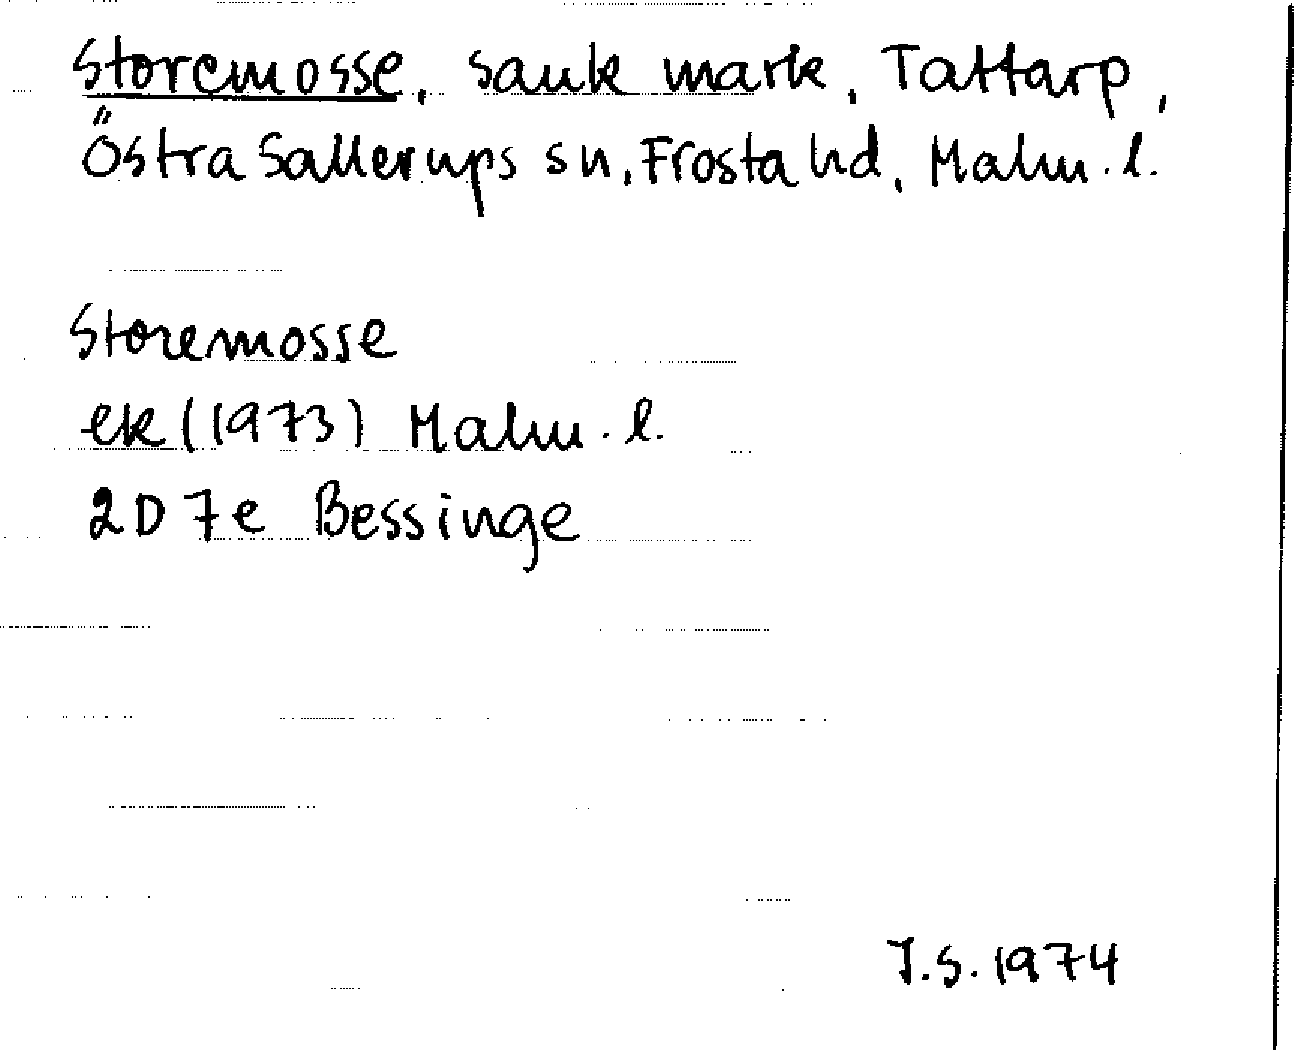 Storemosse, sank mark, Tattarp,
Östra Sallerups sn, Frosta hd, Malm. l.
Storemosse
ek (1973) Malm. l.
2D 7e Bessinge
J.S. 1974